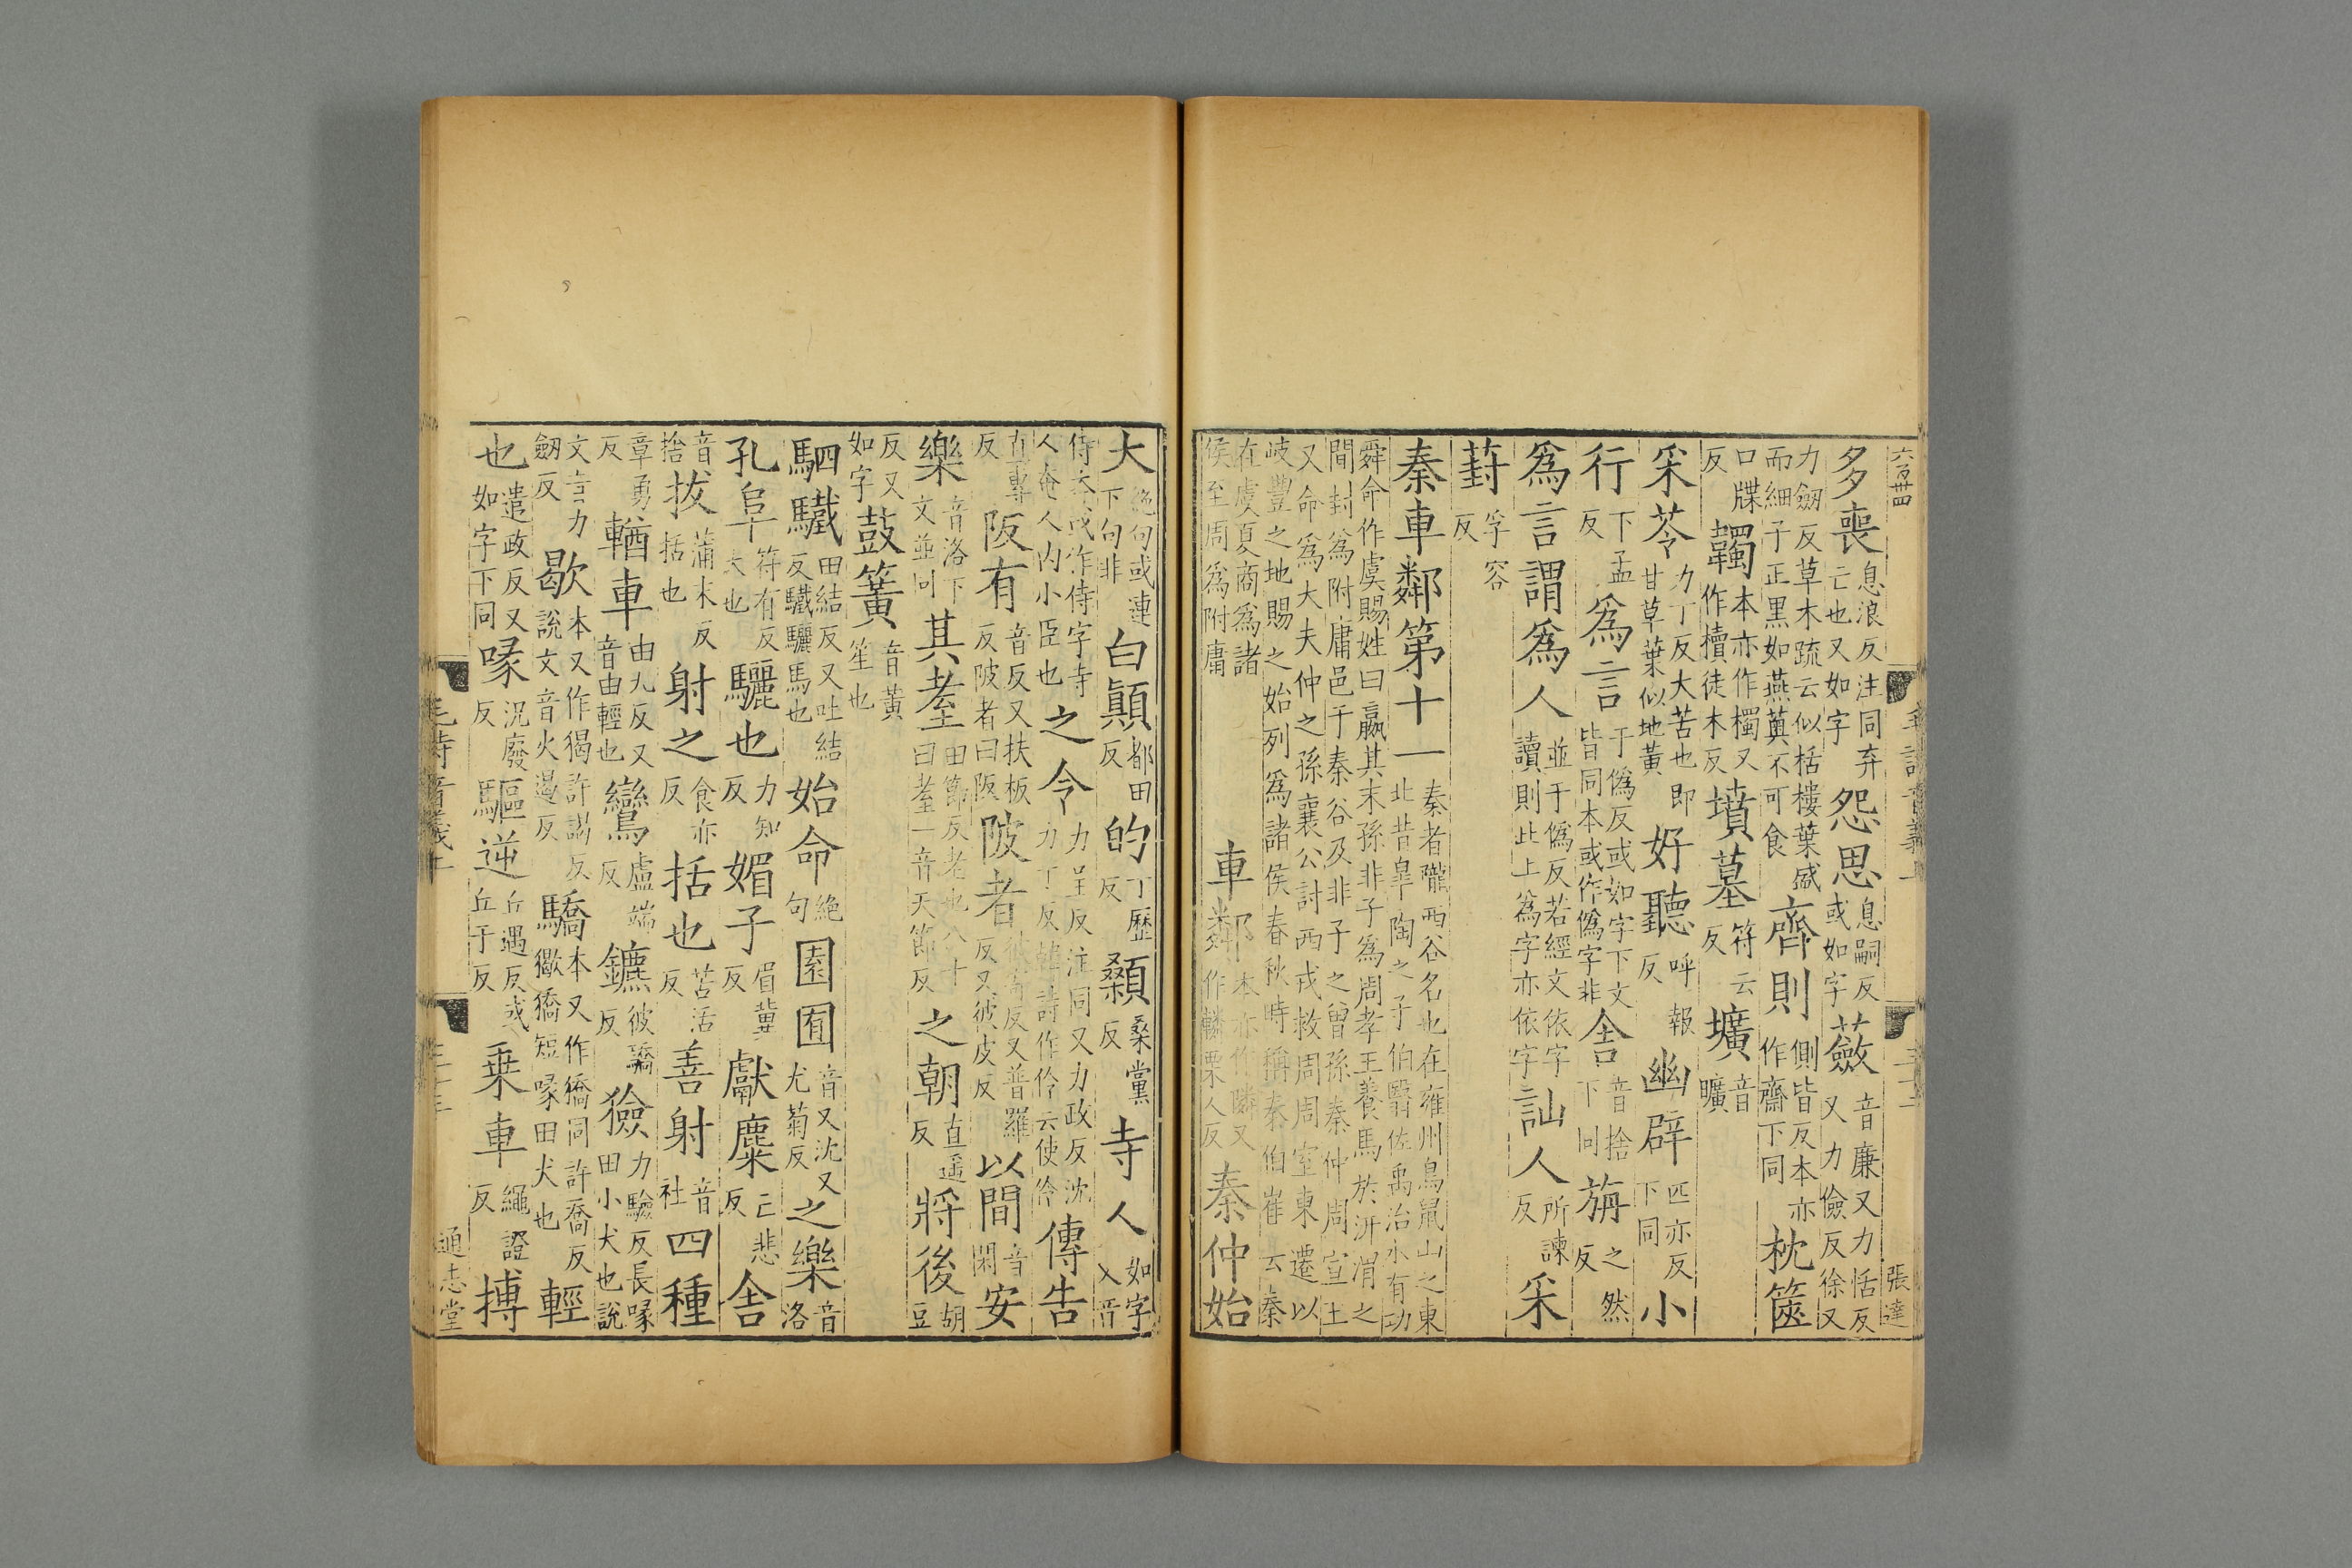 多喪息浪反注同弃亡也又如字怨思息嗣反或如字蘞音廉又力恬反又力儉反徐又
力劔反草木疏云似栝樓葉盛而細子正黑如燕薁不可食齊則側皆反本亦作齋下同枕篋
口牒反韣本亦作襡又作櫝徒木反墳墓符云反壙音曠
采苓力丁反大苦也即甘草葉似地黃好聽呼報反幽辟匹亦反下同小
行下孟反爲言于僞反或如字下文皆同本或作僞字非舍音捨下同旃之然反
爲言謂爲人並于僞反若經文依字讀則此上爲字亦依字訕人所諫反采
葑孚容反
秦車鄰第十一秦者隴西谷名也在雍州鳥鼠山之東北昔皐陶之子伯翳佐禹治水有功
舜命作虞賜姓曰嬴其末孫非子爲周孝王養馬於汧渭之間封爲附庸邑于秦谷及非子之曾孫秦仲周宣王
又命爲大夫仲之孫襄公討西戎救周周室東遷以岐豐之地賜之始列爲諸侯春秋時稱秦伯崔云秦
在虞夏商爲諸侯至周爲附庸車鄰本亦作隣又作轔栗人反秦仲始
大絶句或連下句非白顛都田反的丁歷反顙桑黨反寺人如字又音
侍本或作侍字寺人奄人内小臣也之令力呈反注同又力政反沈力丁反韓詩作伶云使伶傳告
直專反阪有音反又扶板反陂者曰阪陂者彼寄反又普羅反又彼皮反以間音閑安
樂音洛下文並同其耋田節反老也八十曰耋一音天節反之朝直遥反將後胡豆
反又如字鼓簧音黃笙也
駟驖田結反又吐結反驖驪馬也始命絶句園囿音又沈又尤菊反之樂音洛
孔阜符有反大也驪也力知反媚子眉冀反獻麋亡悲反舍
音捨拔蒲末反括也射之食亦反括也苦活反善射音社四種
章勇反輶車由九反又音由輕也鸞盧端反鑣彼驕反獫力驗反長喙田小犬也說
文音力劔反歇本又作猲許謁反說文音火遏反驕本又作獢同許喬反獥獢短喙田犬也輕
也遣政反又如字下同喙況廢反驅逆丘遇反或丘于反乗車繩證反搏
六百卅四
張達
通志堂